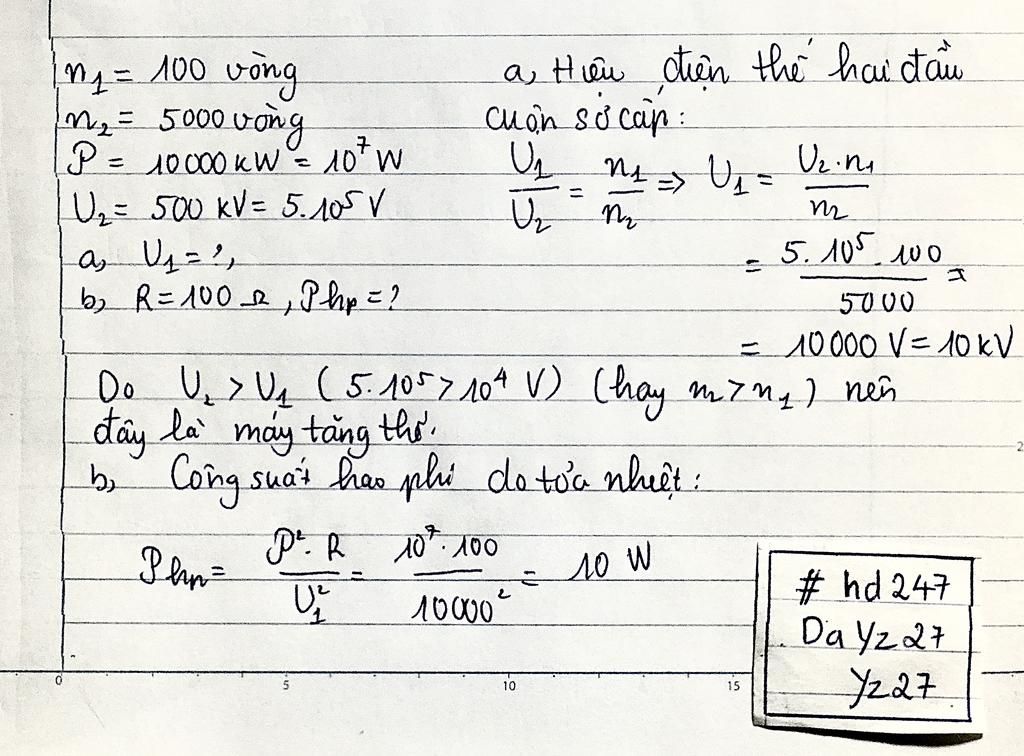 n₁ = 100 vòng
n₂ = 5000 vòng
P = 10000 kW = 10⁷ W
U₂ = 500 kV = 5.10⁵ V
a, U₁ = ?,
b, R = 100 Ω, Php = ?
a, Hiệu điện thế hai đầu
cuộn sơ cấp:
U₁/U₂ = n₁/n₂ => U₁ = U₂.n₁/n₂
= 5.10⁵.100/5000 =
= 10000 V = 10 kV
Do U₂ > U₁ (5.10⁵ > 10⁴ V) (hay n₂ > n₁) nên
đây là máy tăng thế.
b, Công suất hao phí do tỏa nhiệt:
Php = P².R/U₁² = 10⁷.100/10000² = 10 W
# hd247
Da Yz27
Yz27
0 5 10 15
2